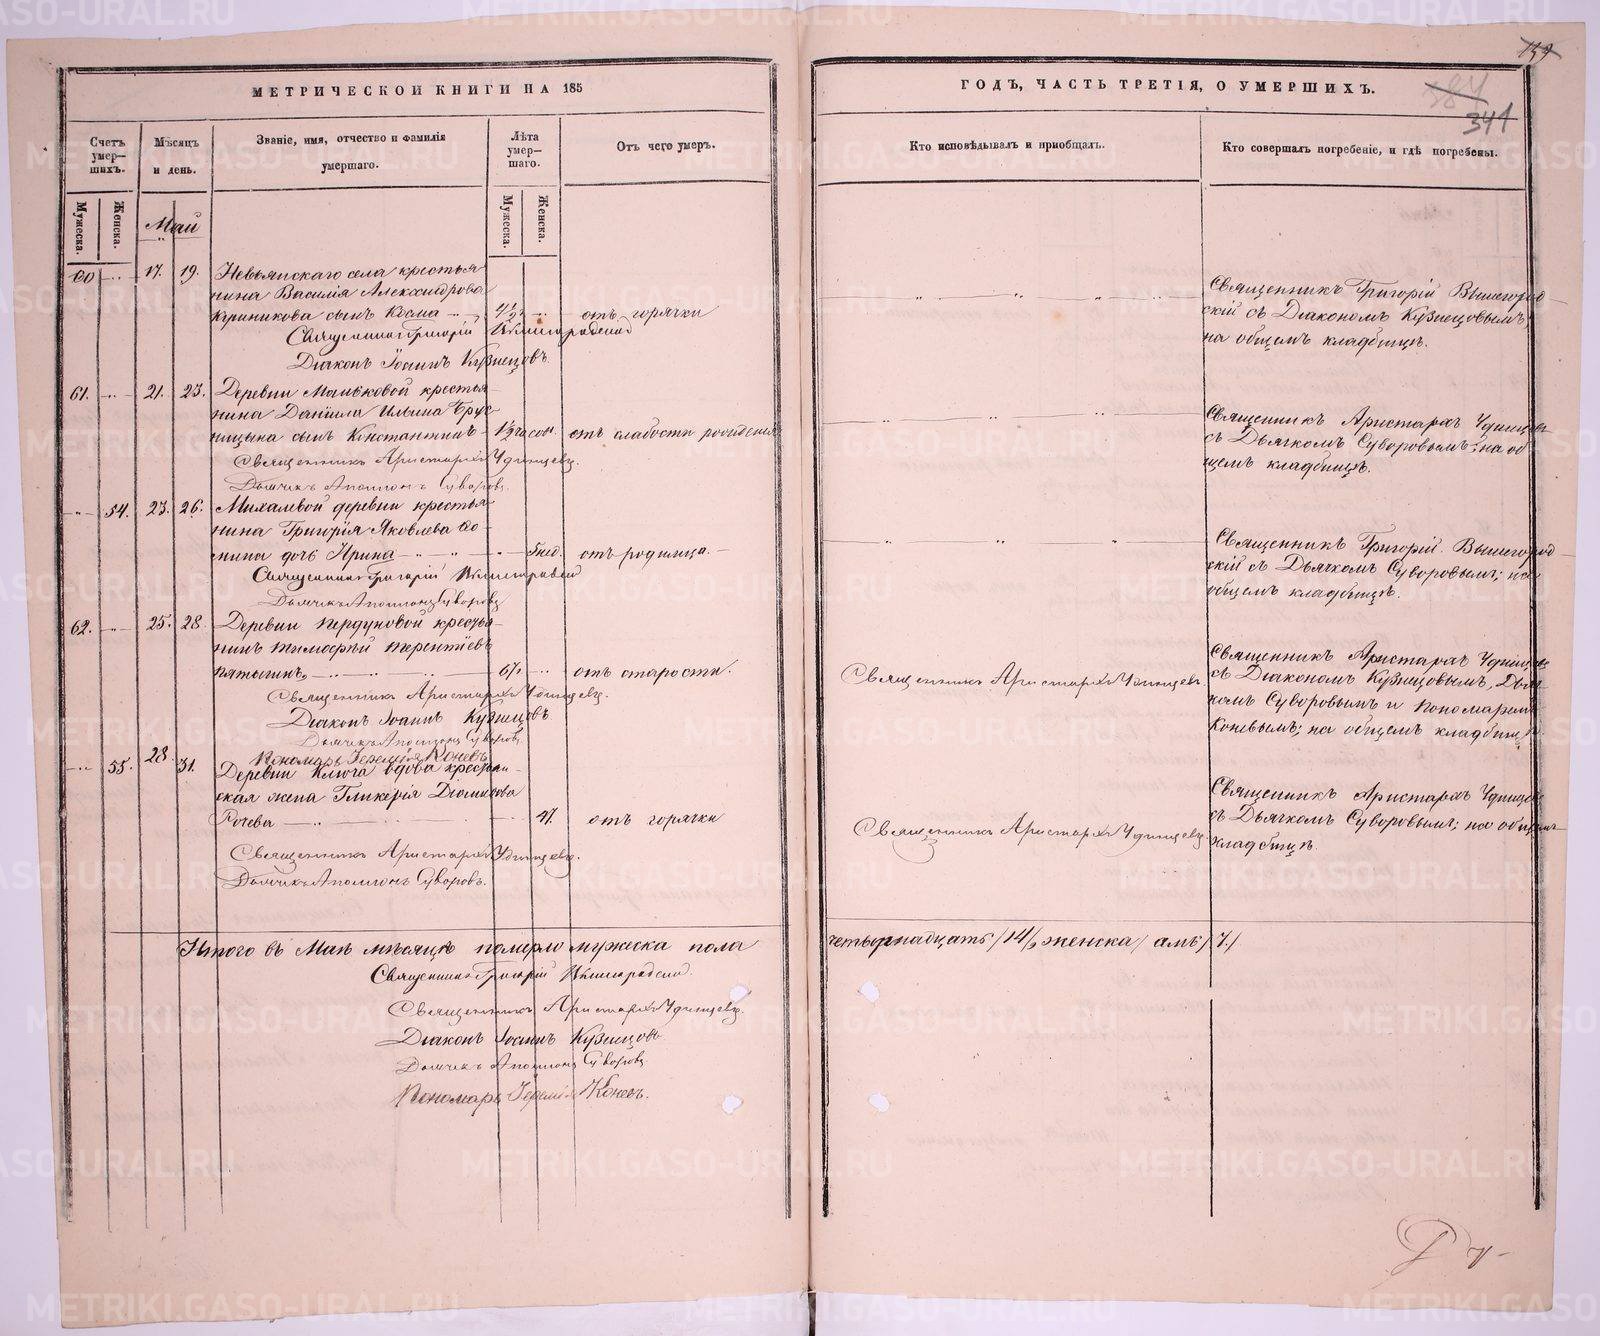 МЕТРИЧЕСКОЙ КНИГИ НА 185
Счетъ умер— шихъ.
Мѣсяцъ и день.
Званіе, имя, отчество и фамилія умершаго.
Лѣта умер— шаго.
Отъ чего умеръ.
Мужеска.
Женска.
Мужеска.
Женска.
Май
60 17. 19. Невьянскаго села крестья
нина Василія Александрова
сынъ Косма 4½ отъ горячки
Священникъ Григорій Вышегородскій
Діаконъ Іоаннъ Кузнецовъ.
61. 21. 23. Деревни Мальковой крестья
нина Даніила Ильина Брус
ницына сынъ Константинъ 1½ часов. отъ слабости рожденія
Священникъ Аристархъ Удинцевъ.
Дьячекъ Аполлонъ Суворовъ.
54. 23. 26. Михалевой деревни крестья
нина Григорія Яковлева Фо
мина дочь Ирина 5 нед. отъ родимца.
Священникъ Григорій Вышегородскій
Дьячекъ Аполлонъ Суворовъ
62. 25. 28. Деревни Пердуновой крестья
нинъ Тимофѣй Терентіевъ
Пятыгинъ 67 отъ старости.
Священникъ Аристархъ Удинцевъ.
Діаконъ Іоаннъ Кузнецовъ
Дьячекъ Аполлонъ Суворовъ
Пономарь Іеремія Коневъ
55. 28. 31. Деревни Ключа вдова крестьян
ская жена Гликерія
47. отъ горячки
Священникъ Аристархъ Удинцевъ.
Дьячекъ Аполлонъ Суворовъ.
Итого въ Маѣ мѣсяцѣ померло мужеска пола
Священникъ Григорій Вышегородскій.
Священникъ Аристархъ Удинцевъ.
Діаконъ Іоаннъ Кузнецовъ
Дьячекъ Аполлонъ Суворовъ
Пономарь Іеремія Коневъ.
384
341
ГОДЪ, ЧАСТЬ ТРЕТІЯ, О УМЕРШИХЪ.
Кто исповѣдывалъ и пріобщалъ.
Кто совершалъ погребеніе, и гдѣ погребены.
Священникъ Григорій Вышегород
скій съ Діакономъ Кузнецовымъ;
на общемъ кладбищѣ.
Священникъ Аристархъ Удинцевъ
съ Дьячкомъ Суворовымъ; на об
щемъ кладбищѣ.
Священникъ Григорій Вышегород
скій съ Дьячкомъ Суворовымъ; на
общемъ кладбищѣ.
Священникъ Аристархъ Удинцевъ
Священникъ Аристархъ Удинцевъ
съ Діакономъ Кузнецовымъ, Дьяч
комъ Суворовымъ и Пономаремъ
Коневымъ; на общемъ кладбищѣ.
Священникъ Аристархъ Удинцевъ.
Священникъ Аристархъ Удинцевъ
съ Дьячкомъ Суворовымъ; на общемъ
кладбищѣ.
четырнадцать /14/, женска /7./
METRIKI.GASO-URAL.RU